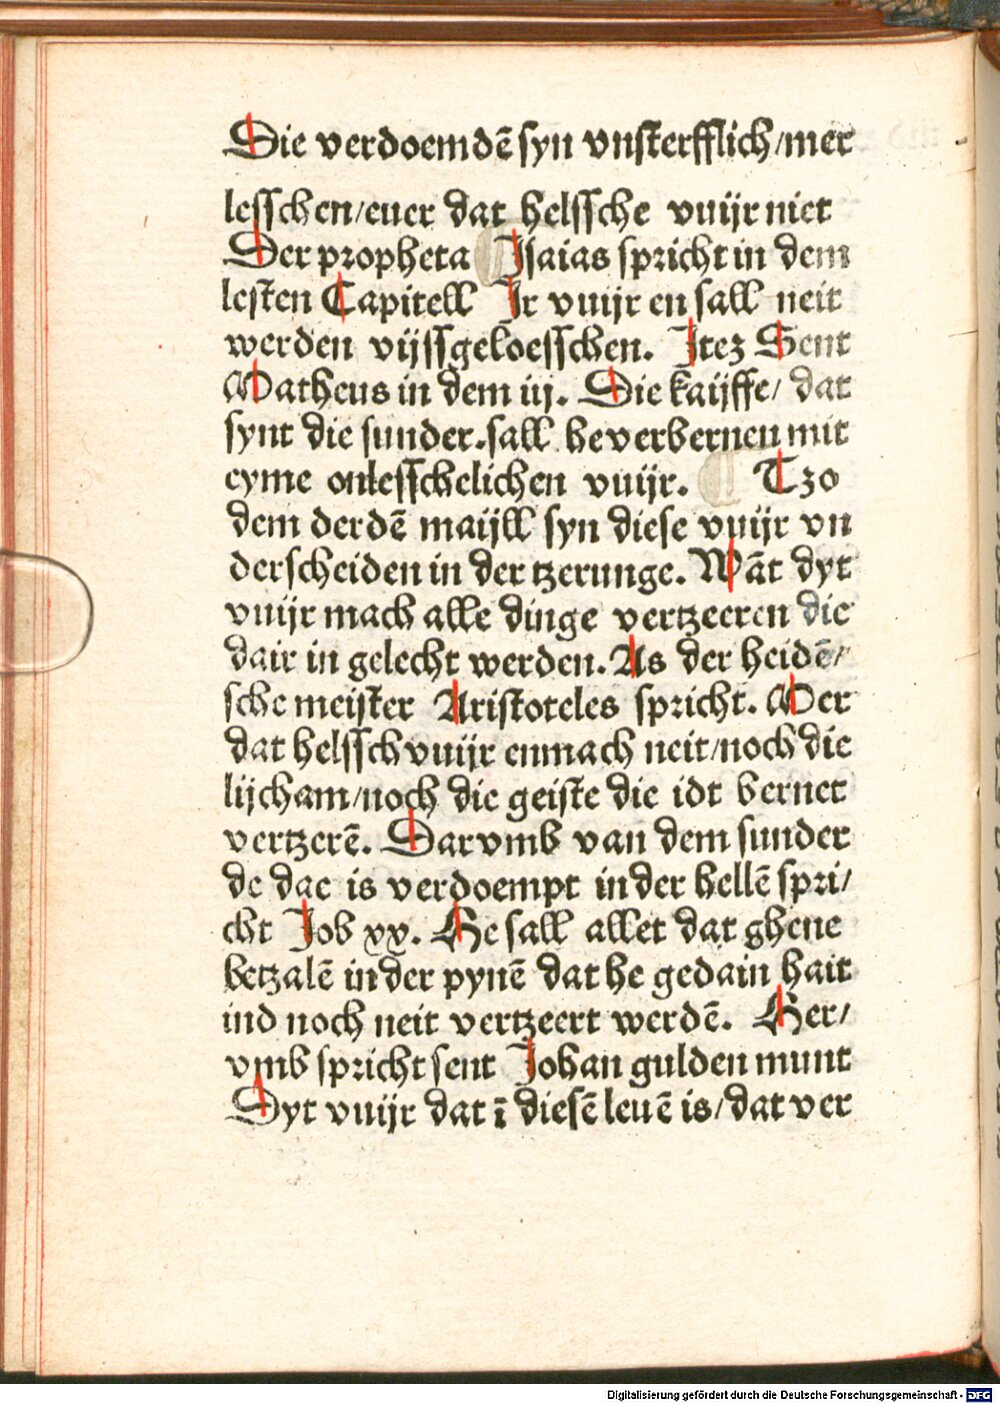 Die verdoemdē syn vnsterfflich/mer
lesschen/euer dat helssche vuijr niet
Der propheta Isaias spricht in dem
lesten Capitell Ir vuijr en sall neit
werden vijssgeloesschen. Itez Sent
Matheus in dem iij. Die kaijffe/ dat
synt die sunder.sall he verbernen mit
eyme onlesschelichen vuijr. Tzo
dem derdē maijll syn diese vuijr vn
derscheiden in der tzerunge. Wāt dyt
vuijr mach alle dinge vertzeeren die
dair in gelecht werden. As der heidē/
sche meister Aristoteles spricht. Mer
dat helssch vuijr enmach neit/noch die
lijcham/noch die geiste die idt bernet
vertzerē. Darvmb van dem sunder
de dae is verdoempt in der hellē spri/
cht Job xx. He sall allet dat ghene
betzalē in der pynē dat he gedain hait
ind noch neit vertzeert werdē. Her/
vmb spricht sent Johan gulden munt
Dyt vuijr dat ī diesē leuē is/dat ver
Digitalisierung gefördert durch die Deutsche Forschungsgemeinschaft - DFG